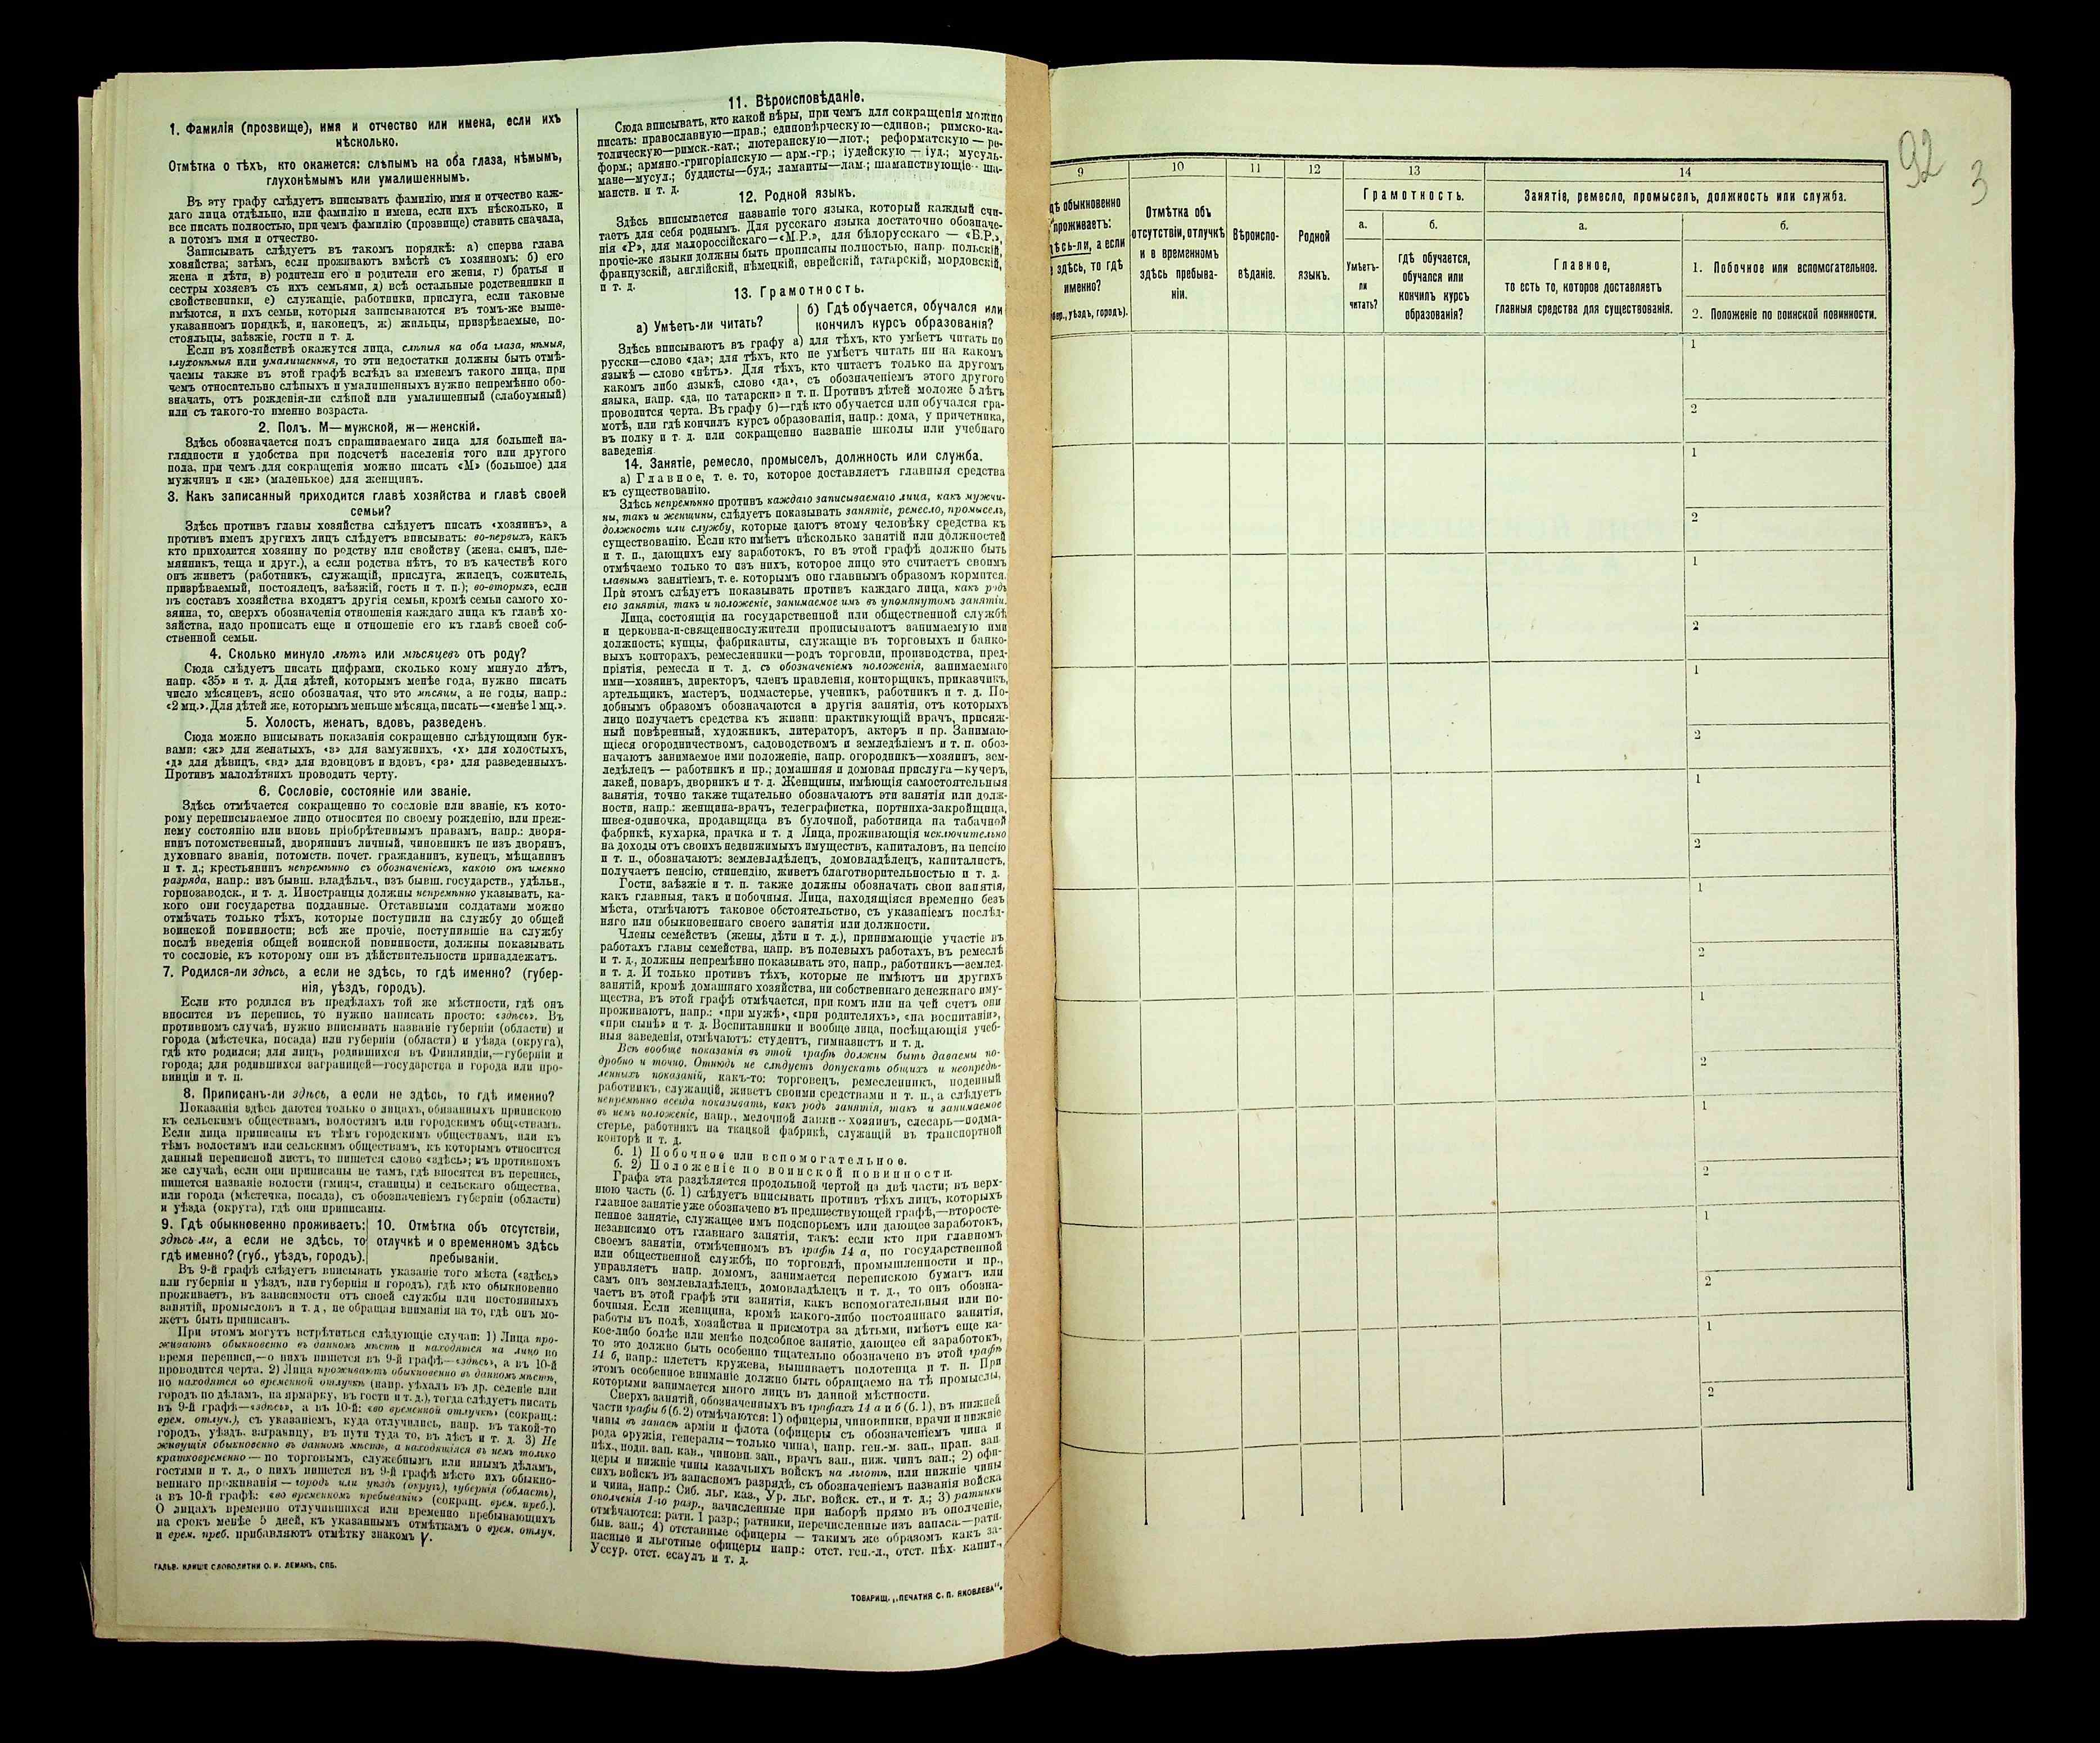 1. Фамилія (прозвище), имя и отчество или имена, если ихъ
нѣсколько.
Отмѣтка о тѣхъ, кто окажется: слѣпымъ на оба глаза, нѣмымъ,
глухонѣмымъ или умалишеннымъ.
Въ эту графу слѣдуетъ вписывать фамилію, имя и отчество каж-
даго лица отдѣльно, или фамилію и имена, если ихъ нѣсколько, и
все писать полностью, при чемъ фамилію (прозвище) ставить сначала,
а потомъ имя и отчество.
Записывать слѣдуетъ въ такомъ порядкѣ: а) сперва глава
хозяйства; затѣмъ, если проживаютъ вмѣстѣ съ хозяиномъ: б) его
жена и дѣти, в) родители его и родители его жены, г) братья и
сестры хозяевъ съ ихъ семьями, д) всѣ остальные родственники и
свойственники, е) служащіе, работники, прислуга, если таковые
имѣются, и ихъ семьи, которыя записываются въ томъ-же выше-
указанномъ порядкѣ, и, наконецъ, ж) жильцы, призрѣваемые, по-
стояльцы, заѣзжіе, гости и т. д.
Если въ хозяйствѣ окажутся лица, слѣпыя на оба глаза, нѣмыя,
глухонѣмыя или умалишенныя, то эти недостатки должны быть отмѣ-
чаемы также въ этой графѣ вслѣдъ за именемъ такого лица, при
чемъ относительно слѣпыхъ и умалишенныхъ нужно непремѣнно обо-
значать, отъ рожденія-ли слѣпой или умалишенный (слабоумный)
или съ такого-то именно возраста.
2. Полъ. М—мужской, ж—женскій.
Здѣсь обозначается полъ спрашиваемаго лица для большей на-
глядности и удобства при подсчетѣ населенія того или другого
пола, при чемъ для сокращенія можно писать «М» (большое) для
мужчинъ и «ж» (маленькое) для женщинъ.
3. Какъ записанный приходится главѣ хозяйства и главѣ своей
семьи?
Здѣсь противъ главы хозяйства слѣдуетъ писать «хозяинъ», а
противъ именъ другихъ лицъ слѣдуетъ вписывать: во-первыхъ, какъ
кто приходится хозяину по родству или свойству (жена, сынъ, пле-
мянникъ, теща и друг.), а если родства нѣтъ, то въ качествѣ кого
онъ живетъ (работникъ, служащій, прислуга, жилецъ, сожитель,
призрѣваемый, постоялецъ, заѣзжій, гость и т. п.); во-вторыхъ, если
въ составъ хозяйства входятъ другія семьи, кромѣ семьи самого хо-
зяина, то, сверхъ обозначенія отношенія каждаго лица къ главѣ хо-
зяйства, надо прописать еще и отношеніе его къ главѣ своей соб-
ственной семьи.
4. Сколько минуло лѣтъ или мѣсяцевъ отъ роду?
Сюда слѣдуетъ писать цифрами, сколько кому минуло лѣтъ,
напр. «35» и т. д. Для дѣтей, которымъ менѣе года, нужно писать
число мѣсяцевъ, ясно обозначая, что это мѣсяцы, а не годы, напр.:
«2 мц.». Для дѣтей же, которымъ меньше мѣсяца, писать—«менѣе 1 мц.».
5. Холостъ, женатъ, вдовъ, разведенъ.
Сюда можно вписывать показанія сокращенно слѣдующими бук-
вами: «ж» для женатыхъ, «з» для замужнихъ, «х» для холостыхъ,
«д» для дѣвицъ, «вд» для вдовцовъ и вдовъ, «рз» для разведенныхъ.
Противъ малолѣтнихъ проводить черту.
6. Сословіе, состояніе или званіе.
Здѣсь отмѣчается сокращенно то сословіе или званіе, къ кото-
рому переписываемое лицо относится по своему рожденію, или преж-
нему состоянію или вновь пріобрѣтеннымъ правамъ, напр.: дворя-
нинъ потомственный, дворянинъ личный, чиновникъ не изъ дворянъ,
духовнаго званія, потомств. почет. гражданинъ, купецъ, мѣщанинъ
и т. д.; крестьянинъ непремѣнно съ обозначеніемъ, какого онъ именно
разряда, напр.: изъ бывш. владѣльч., изъ бывш. государств., удѣльн.,
горнозаводск., и т. д. Иностранцы должны непремѣнно указывать, ка-
кого они государства подданные. Отставными солдатами можно
отмѣчать только тѣхъ, которые поступили на службу до общей
воинской повинности; всѣ же прочіе, поступившіе на службу
послѣ введенія общей воинской повинности, должны показывать
то сословіе, къ которому они въ дѣйствительности принадлежатъ.
7. Родился-ли здѣсь, а если не здѣсь, то гдѣ именно? (губер-
нія, уѣздъ, городъ).
Если кто родился въ предѣлахъ той же мѣстности, гдѣ онъ
вносится въ перепись, то нужно написать просто: «здѣсь». Въ
противномъ случаѣ, нужно вписывать названіе губерніи (области) и
города (мѣстечка, посада) или губерніи (области) и уѣзда (округа),
гдѣ кто родился; для лицъ, родившихся въ Финляндіи,—губерніи и
города; для родившихся заграницей—государства и города или про-
винціи и т. п.
8. Приписанъ-ли здѣсь, а если не здѣсь, то гдѣ именно?
Показанія здѣсь даются только о лицахъ, обязанныхъ припискою
къ сельскимъ обществамъ, волостямъ или городскимъ обществамъ.
Если лица приписаны къ тѣмъ городскимъ обществамъ, или къ
тѣмъ волостямъ или сельскимъ обществамъ, къ которымъ относится
данный переписной листъ, то пишется слово «здѣсь»; въ противномъ
же случаѣ, если они приписаны не тамъ, гдѣ вносятся въ перепись,
пишется названіе волости (гмины, станицы) и сельскаго общества,
или города (мѣстечка, посада), съ обозначеніемъ губерніи (области)
и уѣзда (округа), гдѣ они приписаны.
9. Гдѣ обыкновенно проживаетъ:
здѣсь ли, а если не здѣсь, то
гдѣ именно? (губ., уѣздъ, городъ).
10. Отмѣтка объ отсутствіи,
отлучкѣ и о временномъ здѣсь
пребываніи.
Въ 9-й графѣ слѣдуетъ вписывать указаніе того мѣста («здѣсь»
или губернія и уѣздъ, или губернія и городъ), гдѣ кто обыкновенно
проживаетъ, въ зависимости отъ своей службы или постоянныхъ
занятій, промысловъ и т. д., не обращая вниманія на то, гдѣ онъ мо-
жетъ быть приписанъ.
При этомъ могутъ встрѣтиться слѣдующіе случаи: 1) Лица про-
живаютъ обыкновенно въ данномъ мѣстѣ и находятся на лицо во
время переписи,—о нихъ пишется въ 9-й графѣ—«здѣсь», а въ 10-й
проводится черта. 2) Лица проживаютъ обыкновенно въ данномъ мѣстѣ,
но находятся во временной отлучкѣ (напр. уѣхалъ въ др. селеніе или
городъ по дѣламъ, на ярмарку, въ гости и т. д.), тогда слѣдуетъ писать
въ 9-й графѣ—«здѣсь», а въ 10-й: «во временной отлучкѣ» (сокращ.:
врем. отлуч.), съ указаніемъ, куда отлучились, напр. въ такой-то
городъ, уѣздъ, заграницу, въ пути туда то, въ лѣсъ и т. д. 3) Не
живущія обыкновенно въ данномъ мѣстѣ, а находящіяся въ немъ только
кратковременно — по торговымъ, служебнымъ или инымъ дѣламъ,
гостями и т. д., о нихъ пишется въ 9-й графѣ мѣсто ихъ обыкно-
веннаго проживанія — городъ или уѣздъ (округъ), губернія (область),
а въ 10-й графѣ: «во временномъ пребываніи» (сокращ. врем. преб.).
О лицахъ временно отлучившихся или временно пребывающихъ
на срокъ менѣе 5 дней, къ указаннымъ отмѣткамъ о врем. отлуч.
и врем. преб. прибавляютъ отмѣтку знакомъ V.
ГАЛЬВ. КЛИШЕ СЛОВОЛИТНИ О. И. ЛЕМАНЪ, СПБ.
11. Вѣроисповѣданіе.
Сюда вписывать, кто какой вѣры, при чемъ для сокращенія можно
писать: православную—прав.; единовѣрческую—единов.; римско-ка-
толическую—римск.-кат.; лютеранскую—лют.; реформатскую — ре-
форм.; армяно.-григоріанскую — арм.-гр.; іудейскую — іуд.; мусуль-
мане—мусул.; буддисты—буд.; ламаиты—лам.; шаманствующіе — ша-
манств. и т. д.
12. Родной языкъ.
Здѣсь вписывается названіе того языка, который каждый счи-
таетъ для себя роднымъ. Для русскаго языка достаточно обозначе-
нія «Р», для малороссійскаго—«М.Р.», для бѣлорусскаго — «Б.Р.»,
прочіе-же языки должны быть прописаны полностью, напр. польскій,
французскій, англійскій, нѣмецкій, еврейскій, татарскій, мордовскій,
и т. д.
13. Грамотность.
а) Умѣетъ-ли читать?
б) Гдѣ обучается, обучался или
кончилъ курсъ образованія?
Здѣсь вписываютъ въ графу а) для тѣхъ, кто умѣетъ читать по
русски—слово «да»; для тѣхъ, кто не умѣетъ читать ни на какомъ
языкѣ — слово «нѣтъ». Для тѣхъ, кто читаетъ только на другомъ
какомъ либо языкѣ, слово «да», съ обозначеніемъ этого другого
языка, напр. «да, по татарски» и т. п. Противъ дѣтей моложе 5 лѣтъ
проводится черта. Въ графу б)—гдѣ кто обучается или обучался гра-
мотѣ, или гдѣ кончилъ курсъ образованія, напр.: дома, у причетника,
въ полку и т. д. или сокращенно названіе школы или учебнаго
заведенія.
14. Занятіе, ремесло, промыселъ, должность или служба.
а) Главное, т. е. то, которое доставляетъ главныя средства
къ существованію.
Здѣсь непремѣнно противъ каждаго записываемаго лица, какъ мужчи-
ны, такъ и женщины, слѣдуетъ показывать занятіе, ремесло, промыселъ,
должность или службу, которые даютъ этому человѣку средства къ
существованію. Если кто имѣетъ нѣсколько занятій или должностей
и т. п., дающихъ ему заработокъ, то въ этой графѣ должно быть
отмѣчаемо только то изъ нихъ, которое лицо это считаетъ своимъ
главнымъ занятіемъ, т. е. которымъ оно главнымъ образомъ кормится.
При этомъ слѣдуетъ показывать противъ каждаго лица, какъ родъ
его занятія, такъ и положеніе, занимаемое имъ въ упомянутомъ занятіи.
Лица, состоящія на государственной или общественной службѣ
и церковна-и-священнослужители прописываютъ занимаемую ими
должность; купцы, фабриканты, служащіе въ торговыхъ и банко-
выхъ конторахъ, ремесленники—родъ торговли, производства, пред-
пріятія, ремесла и т. д. съ обозначеніемъ положенія, занимаемаго
ими—хозяинъ, директоръ, членъ правленія, конторщикъ, приказчикъ,
артельщикъ, мастеръ, подмастерье, ученикъ, работникъ и т. д. По-
добнымъ образомъ обозначаются и другія занятія, отъ которыхъ
лицо получаетъ средства къ жизни: практикующій врачъ, присяж-
ный повѣренный, художникъ, литераторъ, актеръ и пр. Занимаю-
щіеся огородничествомъ, садоводствомъ и земледѣліемъ и т. п. обоз-
начаютъ занимаемое ими положеніе, напр. огородникъ—хозяинъ, зем-
ледѣлецъ — работникъ и пр.; домашняя и домовая прислуга—кучеръ,
лакей, поваръ, дворникъ и т. д. Женщины, имѣющія самостоятельныя
занятія, точно также тщательно обозначаютъ эти занятія или долж-
ности, напр.: женщина-врачъ, телеграфистка, портниха-закройщица,
швея-одиночка, продавщица въ булочной, работница на табачной
фабрикѣ, кухарка, прачка и т. д. Лица, проживающія исключительно
на доходы отъ своихъ недвижимыхъ имуществъ, капиталовъ, на пенсію
и т. п., обозначаютъ: землевладѣлецъ, домовладѣлецъ, капиталистъ,
получаетъ пенсію, стипендію, живетъ благотворительностью и т. д.
Гости, заѣзжіе и т. п. также должны обозначать свои занятія,
какъ главныя, такъ и побочныя. Лица, находящіяся временно безъ
мѣста, отмѣчаютъ таковое обстоятельство, съ указаніемъ послѣд-
няго или обыкновеннаго своего занятія или должности.
Члены семействъ (жены, дѣти и т. д.), принимающіе участіе въ
работахъ главы семейства, напр. въ полевыхъ работахъ, въ ремеслѣ
и т. д., должны непремѣнно показывать это, напр., работникъ—землед.
и т. д. И только противъ тѣхъ, которые не имѣютъ ни другихъ
занятій, кромѣ домашняго хозяйства, ни собственнаго денежнаго иму-
щества, въ этой графѣ отмѣчается, при комъ или на чей счетъ они
проживаютъ, напр.: «при мужѣ», «при родителяхъ», «на воспитаніи»,
«при сынѣ» и т. д. Воспитанники и вообще лица, посѣщающія учеб-
ныя заведенія, отмѣчаютъ: студентъ, гимназистъ и т. д.
Всѣ вообще показанія въ этой графѣ должны быть даваемы по-
дробно и точно. Отнюдь не слѣдуетъ допускать общихъ и неопредѣ-
ленныхъ показаній, какъ-то: торговецъ, ремесленникъ, поденный
работникъ, служащій, живетъ своими средствами и т. п., а слѣдуетъ
непремѣнно всегда показывать, какъ родъ занятія, такъ и занимаемое
въ немъ положеніе, напр., мелочной лавки -- хозяинъ, слесарь—подма-
стерье, работникъ на ткацкой фабрикѣ, служащій въ транспортной
конторѣ и т. д.
б. 1) Побочное или вспомогательное.
б. 2) Положеніе по воинской повинности.
Графа эта раздѣляется продольной чертой на двѣ части; въ верх-
нюю часть (б. 1) слѣдуетъ вписывать противъ тѣхъ лицъ, которыхъ
главное занятіе уже обозначено въ предшествующей графѣ,—второсте-
пенное занятіе, служащее имъ подспорьемъ или дающее заработокъ,
независимо отъ главнаго занятія, такъ: если кто при главномъ
своемъ занятіи, отмѣченномъ въ графѣ 14 а, по государственной
или общественной службѣ, по торговлѣ, промышленности и пр.,
управляетъ напр. домомъ, занимается перепискою бумагъ или
самъ онъ землевладѣлецъ, домовладѣлецъ и т. д., то онъ обозна-
чаетъ въ этой графѣ эти занятія, какъ вспомогательныя или по-
бочныя. Если женщина, кромѣ какого-либо постояннаго занятія,
работы въ полѣ, хозяйства и присмотра за дѣтьми, имѣетъ еще ка-
кое-либо болѣе или менѣе подсобное занятіе, дающее ей заработокъ,
то это должно быть особенно тщательно обозначено въ этой графѣ
14 б, напр.: плететъ кружева, вышиваетъ полотенца и т. п. При
этомъ особенное вниманіе должно быть обращаемо на тѣ промыслы,
которыми занимается много лицъ въ данной мѣстности.
Сверхъ занятій, обозначенныхъ въ графахъ 14 а и б (б. 1), въ нижней
части графы б (б. 2) отмѣчаются: 1) офицеры, чиновники, врачи и нижніе
чины въ запасѣ арміи и флота (офицеры съ обозначеніемъ чина и
рода оружія, генералы—только чина), напр. ген.-м. зап., прап. зап.
пѣх., подп. зап. кав., чиновн. зап., врачъ зап., ниж. чинъ зап.; 2) офи-
церы и нижніе чины казачьихъ войскъ на льготѣ, или нижніе чины
сихъ войскъ въ запасномъ разрядѣ, съ обозначеніемъ названія войска
и чина, напр.: Сиб. льг. каз., Ур. льг. войск. ст., и т. д.; 3) ратники
ополченія 1-го разр., зачисленные при наборѣ прямо въ ополченіе,
отмѣчаются: ратн. 1 разр.; ратники, перечисленные изъ запаса.—ратн.
быв. зап.; 4) отставные офицеры — такимъ же образомъ какъ за-
пасные и льготные офицеры напр.: отст. ген.-л., отст. пѣх. капит.,
Уссур. отст. есаулъ и т. д.
ТОВАРИЩ. „ПЕЧАТНЯ С. П. ЯКОВЛЕВА“.
92
3
9
10
11
12
13
14
обыкновенно
проживаетъ:
а если
здѣсь, то гдѣ
именно?
уѣздъ, городъ).
Отмѣтка объ
отсутствіи, отлучкѣ
и о временномъ
здѣсь пребыва-
ніи.
Вѣроиспо-
вѣданіе.
Родной
языкъ.
Грамотность.
а.
Умѣетъ-
ли
читать?
б.
гдѣ обучается,
обучался или
кончилъ курсъ
образованія?
Занятіе, ремесло, промыселъ, должность или служба.
а.
Главное,
то есть то, которое доставляетъ
главныя средства для существованія.
б.
1. Побочное или вспомогательное.
2. Положеніе по воинской повинности.
1
2
1
2
1
2
1
2
1
2
1
2
1
2
1
2
1
2
1
2